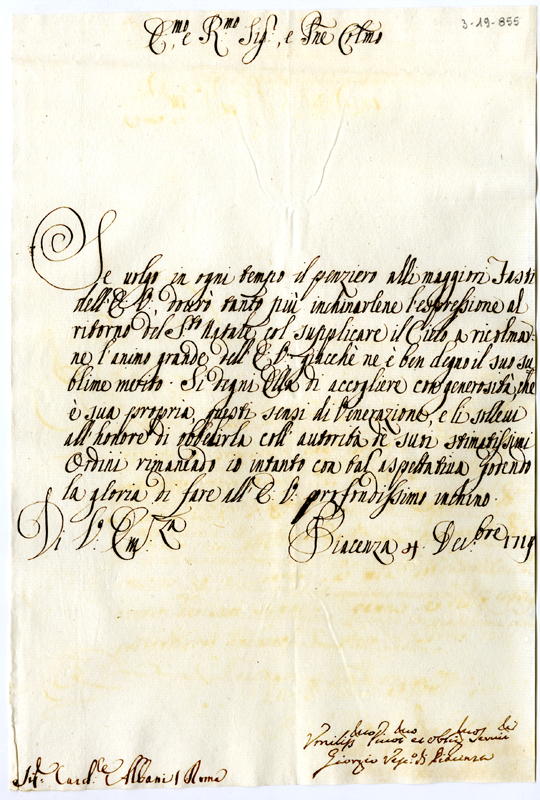 3-19-855
E.mo e R.mo Sig.r, e Pne Colmo
Se uolgo in ogni tempo il penziero alli maggiori Fasti
dell'E. V., dourò tanto più inchinarlene l'espressione al
ritorno del S.to Natale, col supplicare il Cielo a ricolmar-
ne l'animo grande dell'E. V. giacchè ne è ben degno il suo su-
blime merito. Si degni Ella di accogliere con generosità, che
è sua propria, questi sensi di Venerazione, e li solleui
all'honore di obbedirla coll'autorità de suoi stimatissimi
Ordini rimanendo io intanto con tal aspettatiua godendo
la gloria di fare all'E. V. profondissimo inchino.
Di V. Em.za Piacenza 4. Dec.bre 1719
Vmiliss.mo
Giorgio Vesc.o di Piacenza
Sig.r Card.le Albani / Roma